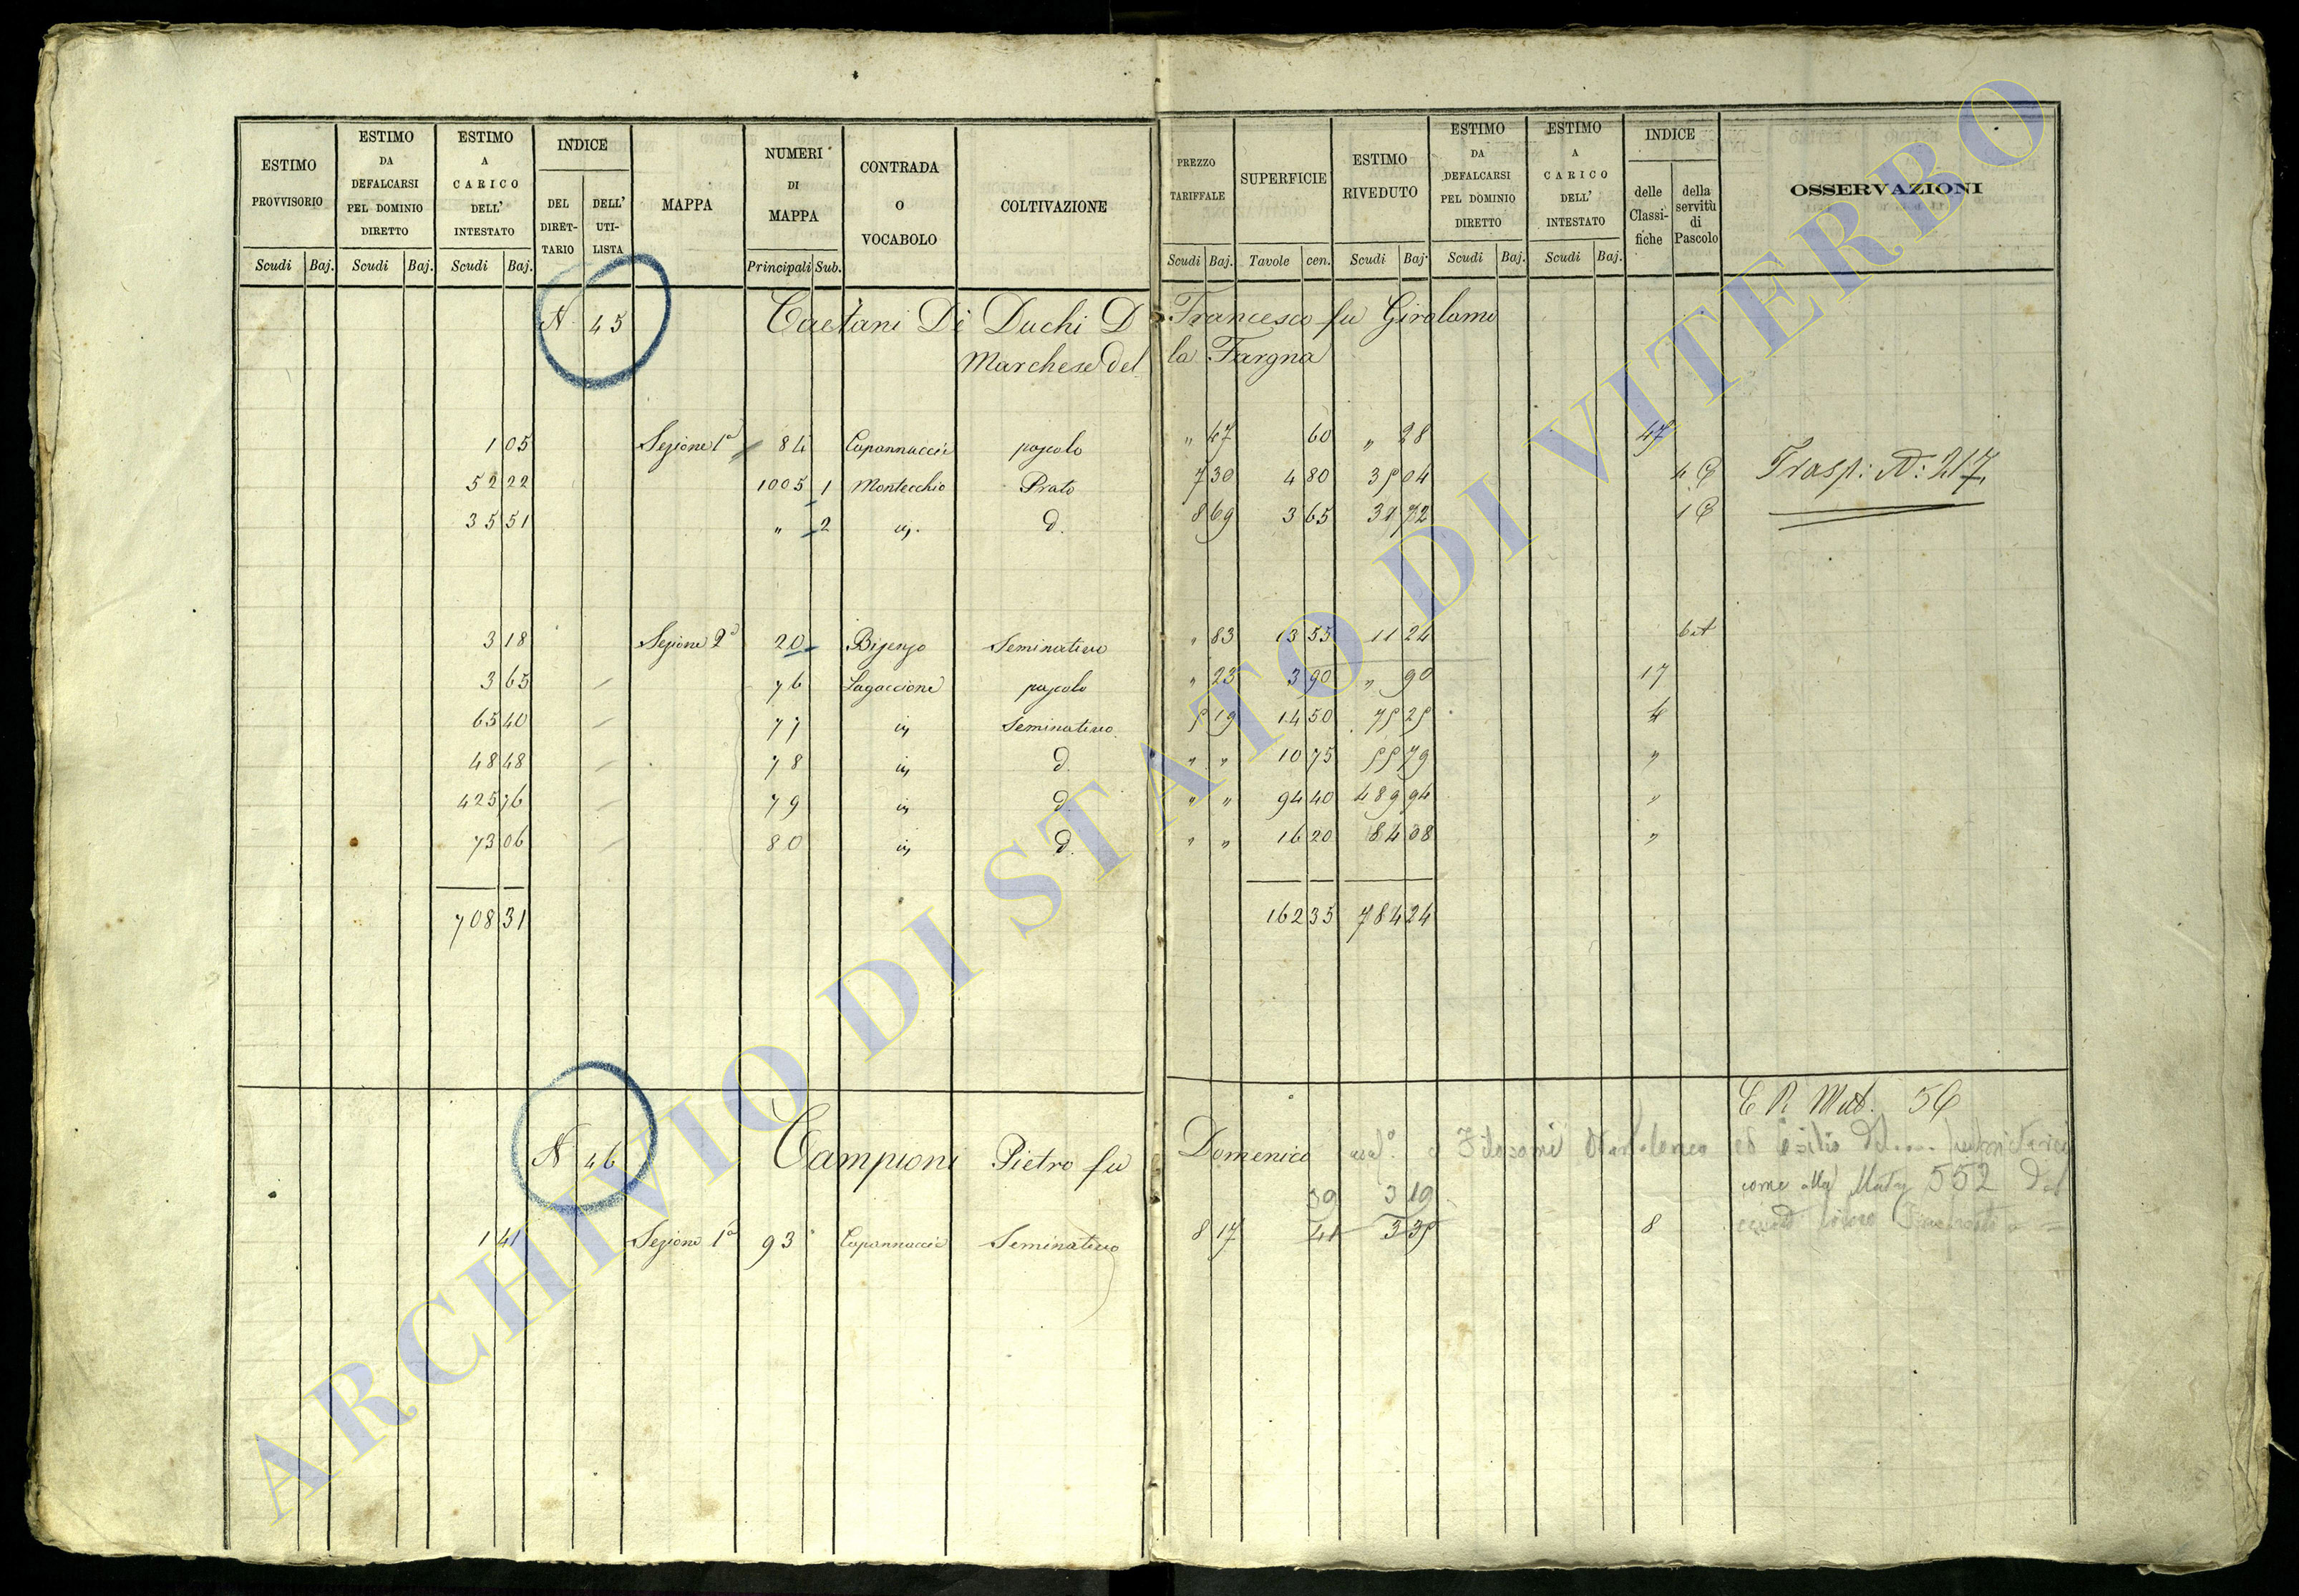 ESTIMO PROVVISORIO | ESTIMO DA DEFALCARSI PEL DOMINIO DIRETTO | ESTIMO A CARICO DELL' INTESTATO | INDICE DEL DIRETTARIO | DELL' UTILISTA | MAPPA | NUMERI DI MAPPA | CONTRADA O VOCABOLO | COLTIVAZIONE | PREZZO TARIFFALE | SUPERFICIE | ESTIMO RIVEDUTO | ESTIMO DA DEFALCARSI PEL DOMINIO DIRETTO | ESTIMO A CARICO DELL' INTESTATO | INDICE delle Classifiche | della servitù di Pascolo | OSSERVAZIONI
Scudi Baj. Scudi Baj. Scudi Baj. Principali Sub. Scudi Baj. Tavole cen. Scudi Baj. Scudi Baj. Scudi Baj.
N. 45 Caetani Dè Duchi D Francesco fu Girolamo
Marchese della Fargna
1 05 Sezione 1ª 84 Capannaccie pascolo " 47 60 " 28 47
52 22 1005 1 Montecchio Prato 7 30 4 80 35 04 4 Trasp: N: 217
35 51 " 2 D. 8 69 3 65 31 72 1
3 18 Sezione 2ª 20 Bisenzo Seminativo " 83 13 55 11 24
3 65 76 Lagaccione pascolo " 23 3 90 " 90 17
65 40 77 Seminativo 5 19 14 50 75 25 4
48 48 78 D. " " 10 75 55 79 "
425 76 79 D. " " 94 40 489 94 "
73 06 80 D. " " 16 20 84 08 "
708 31 162 35 784 24
56
N 46 Campioni Pietro fu Domenico
39 3 19 come alla 552
1 41 Sezione 1ª 93 Capannaccie Seminativo 8 17 41 3 35 8
ARCHIVIO DI STATO DI VITERBO